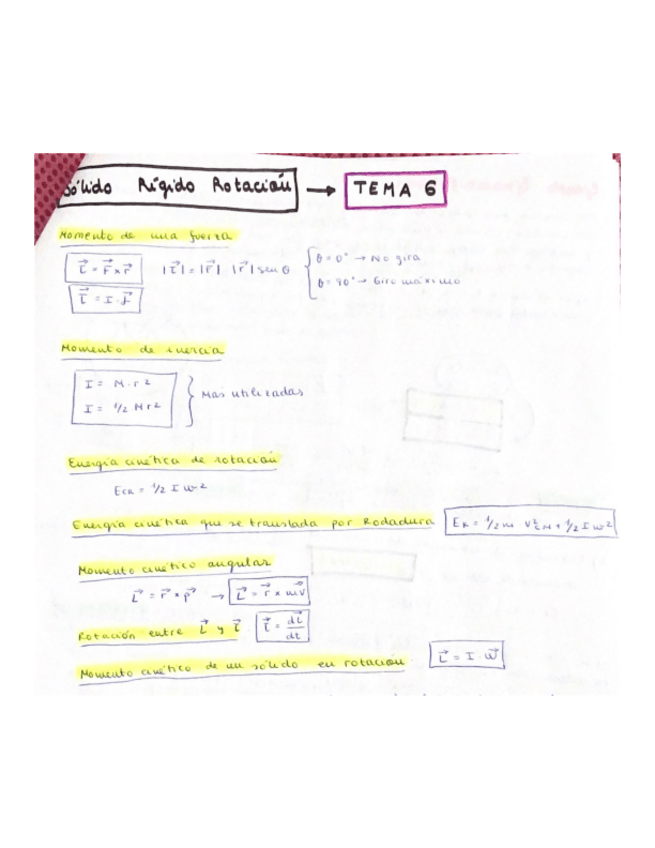 Sólido Rígido Rotación → TEMA 6
Momento de una fuerza
τ⃗ = F⃗ x r⃗ |τ⃗| = |r⃗| · |r⃗| sen θ { θ = 0° → No gira
θ = 90° → Giro máximo
τ⃗ = I · f⃗
Momento de inercia
I = M · r² } Mas utilizadas
I = 1/2 M r²
Energía cinética de rotación
Ecr = 1/2 I w²
Energía cinética que se translada por Rodadura Ek = 1/2 m V²cm + 1/2 I w²
Momento cinético angular
L⃗ = r⃗ x p⃗ → L⃗ = r⃗ x mv⃗
Rotación entre L⃗ y τ⃗ τ⃗ = dL⃗/dt
Momento cinético de un sólido en rotación L⃗ = I · w⃗